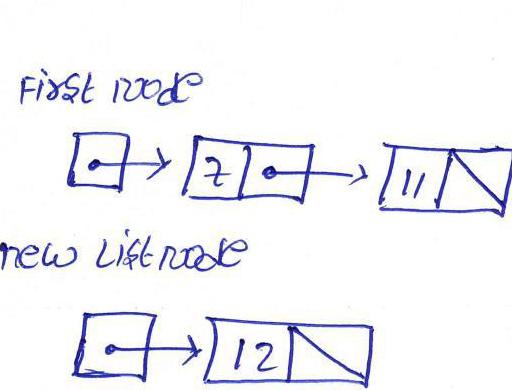 First node
7 11
new Listnode
12